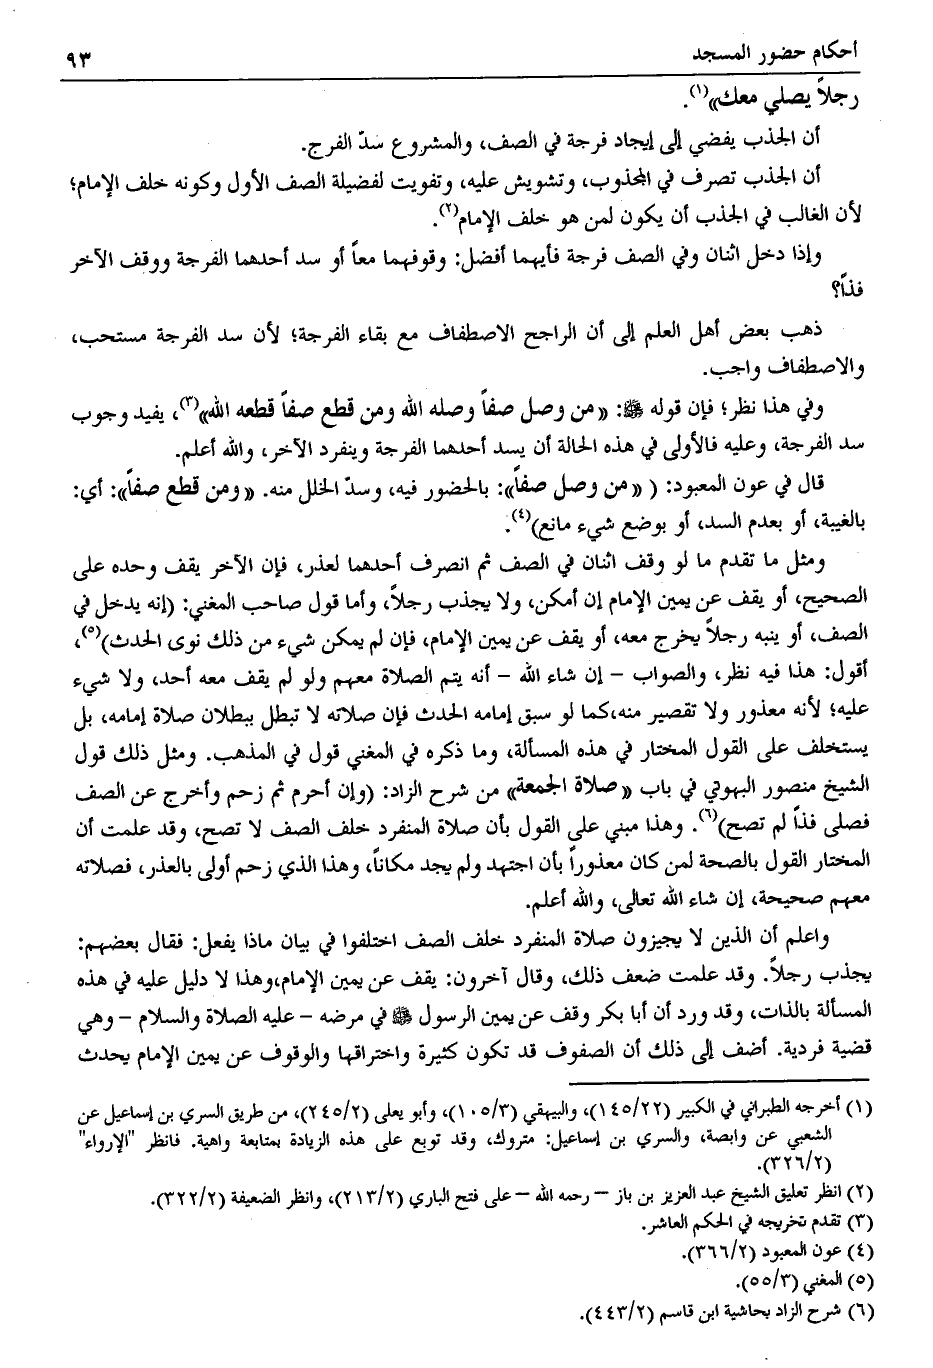 أحكام حضور المسجد ٩٣
رجلاً يصلي معك»(١).
أن الجذب يفضي إلى إيجاد فرجة في الصف، والمشروع سدّ الفرج.
أن الجذب تصرف في المجذوب، وتشويش عليه، وتفويت لفضيلة الصف الأول وكونه خلف الإمام؛
لأن الغالب في الجذب أن يكون لمن هو خلف الإمام(٢).
وإذا دخل اثنان وفي الصف فرجة فأيهما أفضل: وقوفهما معاً أو سد أحدهما الفرجة ووقف الآخر
فذاً؟
ذهب بعض أهل العلم إلى أن الراجح الاصطفاف مع بقاء الفرجة؛ لأن سد الفرجة مستحب،
والاصطفاف واجب.
وفي هذا نظر؛ فإن قوله ﷺ: «من وصل صفاً وصله الله ومن قطع صفاً قطعه الله»(٣)، يفيد وجوب
سد الفرجة، وعليه فالأولى في هذه الحالة أن يسد أحدهما الفرجة وينفرد الآخر، والله أعلم.
قال في عون المعبود: ( «من وصل صفاً»: بالحضور فيه، وسدّ الخلل منه. «ومن قطع صفاً»: أي:
بالغيبة، أو بعدم السد، أو بوضع شيء مانع)(٤).
ومثل ما تقدم ما لو وقف اثنان في الصف ثم انصرف أحدهما لعذر، فإن الآخر يقف وحده على
الصحيح، أو يقف عن يمين الإمام إن أمكن، ولا يجذب رجلاً، وأما قول صاحب المغني: (إنه يدخل في
الصف، أو ينبه رجلاً يخرج معه، أو يقف عن يمين الإمام، فإن لم يمكن شيء من ذلك نوى الحدث)(٥)،
أقول: هذا فيه نظر، والصواب – إن شاء الله – أنه يتم الصلاة معهم ولو لم يقف معه أحد، ولا شيء
عليه؛ لأنه معذور ولا تقصير منه،كما لو سبق إمامه الحدث فإن صلاته لا تبطل ببطلان صلاة إمامه، بل
يستخلف على القول المختار في هذه المسألة، وما ذكره في المغني قول في المذهب. ومثل ذلك قول
الشيخ منصور البهوتي في باب «صلاة الجمعة» من شرح الزاد: (وإن أحرم ثم زحم وأخرج عن الصف
فصلى فذاً لم تصح)(٦). وهذا مبني على القول بأن صلاة المنفرد خلف الصف لا تصح، وقد علمت أن
المختار القول بالصحة لمن كان معذوراً بأن اجتهد ولم يجد مكاناً، وهذا الذي زحم أولى بالعذر، فصلاته
معهم صحيحة، إن شاء الله تعالى، والله أعلم.
واعلم أن الذين لا يجيزون صلاة المنفرد خلف الصف اختلفوا في بيان ماذا يفعل: فقال بعضهم:
يجذب رجلاً. وقد علمت ضعف ذلك، وقال آخرون: يقف عن يمين الإمام،وهذا لا دليل عليه في هذه
المسألة بالذات، وقد ورد أن أبا بكر وقف عن يمين الرسول ﷺ في مرضه – عليه الصلاة والسلام – وهي
قضية فردية. أضف إلى ذلك أن الصفوف قد تكون كثيرة واختراقها والوقوف عن يمين الإمام يحدث
(١) أخرجه الطبراني في الكبير (١٤٥/٢٢)، والبيهقي (١٠٥/٣)، وأبو يعلى (٢٤٥/٢)، من طريق السري بن إسماعيل عن
الشعبي عن وابصة، والسري بن إسماعيل: متروك، وقد توبع على هذه الزيادة بمتابعة واهية. فانظر "الإرواء"
(٣٢٦/٢).
(٢) انظر تعليق الشيخ عبد العزيز بن باز – رحمه الله – على فتح الباري (٢١٣/٢)، وانظر الضعيفة (٣٢٢/٢).
(٣) تقدم تخريجه في الحكم العاشر.
(٤) عون المعبود (٣٦٦/٢).
(٥) المغني (٥٥/٣).
(٦) شرح الزاد بحاشية ابن قاسم (٤٤٣/٢).